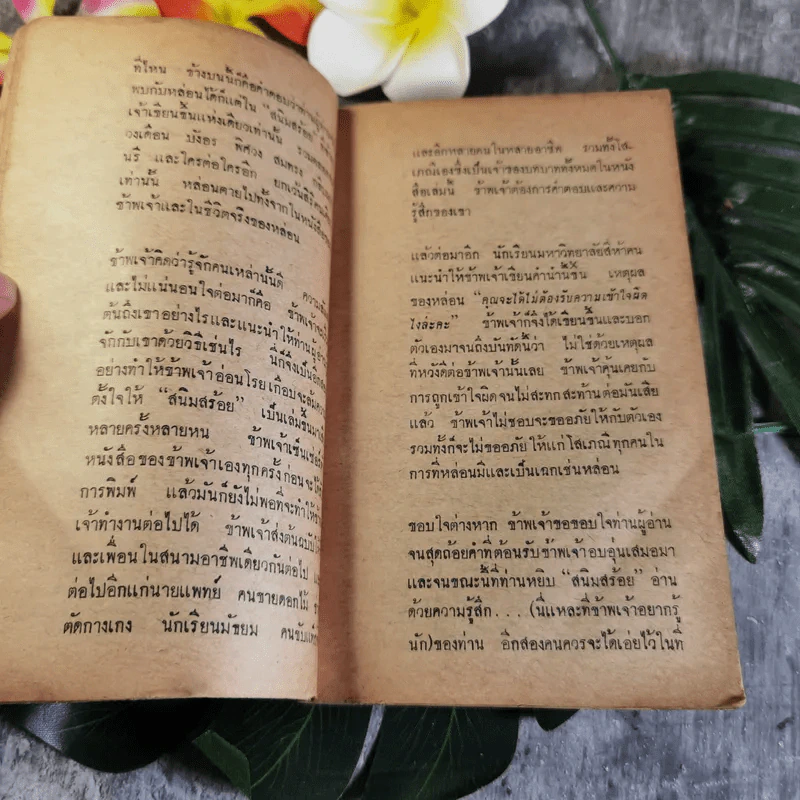 ที่ไหน ข้างบนนี้ก็คือคำตอบว่าท่านผู้อ่าน
พบกับหล่อนได้ก็แต่ใน “สนิมสร้อย”
เจ้าเขียนขึ้นแห่งเดียวเท่านั้น
วงเดือน บังอร พิศวง สมทรง
นรี และใครต่อใครอีก
เท่านั้น หล่อนตายไปทั้งจากในหนังสือของ
ข้าพเจ้าและในชีวิตจริงของหล่อน
ข้าพเจ้าคิดว่ารู้จักคนเหล่านั้นดี
และไม่แน่นอนใจต่อมาก็คือ ข้าพเจ้าจะ
ต้นถึงเขาอย่างไรและแนะนำให้ท่านผู้อ่าน
จักกับเขาด้วยวิธีเช่นไร นี่ก็จึงเป็นอีก
อย่างทำให้ข้าพเจ้าอ่อนโรยเกือบจะล้ม
ตั้งใจให้ “สนิมสร้อย” เป็นเล่มขึ้นมา
หลายครั้งหลายหน ข้าพเจ้าเซ็น
หนังสือของข้าพเจ้าเองทุกครั้งก่อนจะ
การพิมพ์ แล้วมันก็ยังไม่พอที่จะทำให้
เจ้าทำงานต่อไปได้ ข้าพเจ้าส่งต้นฉบับ
และเพื่อนในสนามอาชีพเดียวกันต่อไป
ต่อไปอีกแก่นายแพทย์ คนขายดอกไม้
ตัดกางเกง นักเรียนมัธยม คนขับ
และอีกหลายคนในหลายอาชีพ รวมทั้งโส-
เภณีเองซึ่งเป็นเจ้าของบทบาททั้งหมดในหนัง
สือเล่มนี้ ข้าพเจ้าต้องการคำตอบและความ
รู้สึกของเขา
แล้วต่อมาอีก นักเรียนมหาวิทยาลัยสี่ห้าคน
แนะนำให้ข้าพเจ้าเขียนคำนำนี้ขึ้น เหตุผล
ของหล่อน “คุณจะได้ไม่ต้องรับความเข้าใจผิด
ไงล่ะคะ” ข้าพเจ้าก็จึงได้เขียนขึ้นและบอก
ตัวเองมาจนถึงบันทัดนี้ว่า ไม่ใช่ด้วยเหตุผล
ที่หวังดีต่อข้าพเจ้านั้นเลย ข้าพเจ้าคุ้นเคยกับ
การถูกเข้าใจผิดจนไม่สะทกสะท้านต่อมันเสีย
แล้ว ข้าพเจ้าไม่ชอบจะขออภัยให้กับตัวเอง
รวมทั้งก็จะไม่ขออภัยให้แก่โสเภณีทุกคนใน
การที่หล่อนมีและเป็นเฉกเช่นหล่อน
ขอบใจต่างหาก ข้าพเจ้าขอขอบใจท่านผู้อ่าน
จนสุดถ้อยคำที่ต้อนรับข้าพเจ้าอบอุ่นเสมอมา
และจนขณะนี้ที่ท่านหยิบ “สนิมสร้อย” อ่าน
ด้วยความรู้สึก... (นี่แหละที่ข้าพเจ้าอยากรู้
นัก)ของท่าน อีกสองคนควรจะได้เอ่ยไว้ในที่